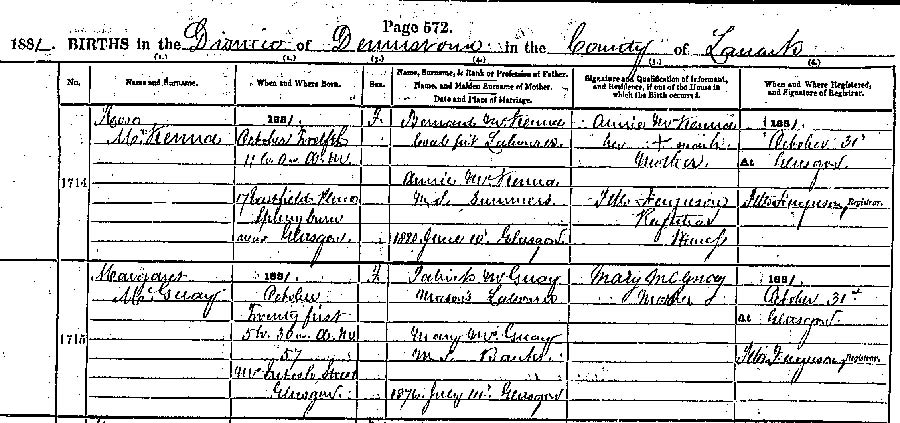 Page 572.
1881. BIRTHS in the District of Dennistoun in the County of Lanark
(1.) (2.) (3.) (4.) (5.) (6.)
No. Name and Surname. When and Where Born. Sex. Name, Surname, & Rank or Profession of Father. Name, and Maiden Surname of Mother. Date and Place of Marriage. Signature and Qualification of Informant, and Residence, if out of the House in which the Birth occurred. When and Where Registered, and Signature of Registrar.
1714
Rose
McKenna
1881.
October Twelfth
11 h. 0 m. A.M.
Springburn
near Glasgow.
F.
Bernard McKenna
Coal pit Labourer
Annie McKenna
M.S. Summers.
1880. June 10th Glasgow.
Annie McKenna
her + mark
Mother.
Ferguson
Registrar
Witness
1881.
October 31st
At Glasgow.
Ferguson, Registrar.
1715
Margaret
McGuay
1881.
October
Twenty first
5 h. 30 m. A.M.
57
McIntosh Street
Glasgow.
F.
Patrick McGuay
Mason's Labourer
Mary McGuay
M.S.
1876. July 11th Glasgow
Mary McGuay
Mother
1881.
October 31st
At Glasgow.
Ferguson, Registrar.